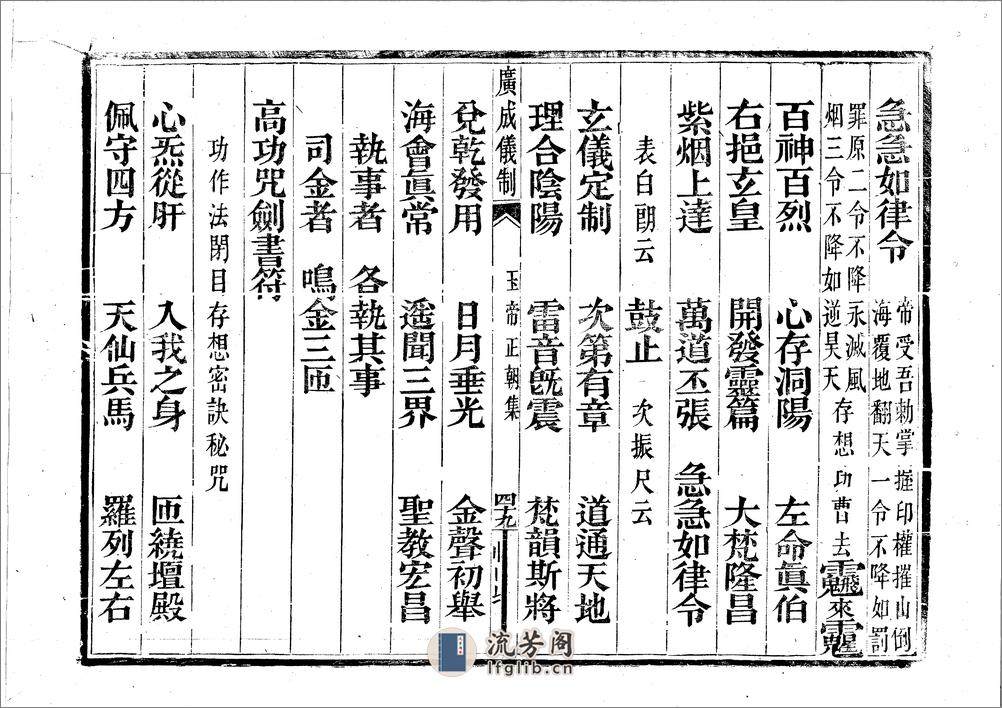 急急如律令
帝受吾勅掌握印權摧山倒
海覆地翻天一令不降如罰
罪原二令不降永滅風
烟三令不降如逆昊天
存想功曹去 來
百神百烈 心存洞陽 左命眞伯
右挹玄皇 開發靈篇 大梵隆昌
紫烟上達 萬道丕張 急急如律令
表白朗云 鼓止 次振尺云
玄儀定制 次第有章 道通天地
理合陰陽 雷音旣震 梵韻斯將
廣成儀制 玉帝正朝集 四九
兌乾發用 日月垂光 金聲初舉
海會眞常 遥聞三界 聖教宏昌
執事者 各執其事
司金者 鳴金三匝
高功咒劍書符
功作法閉目存想密訣秘咒
心炁從肝 入我之身 匝繞壇殿
佩守四方 天仙兵馬 羅列左右
流芳阁
lfglib.cn